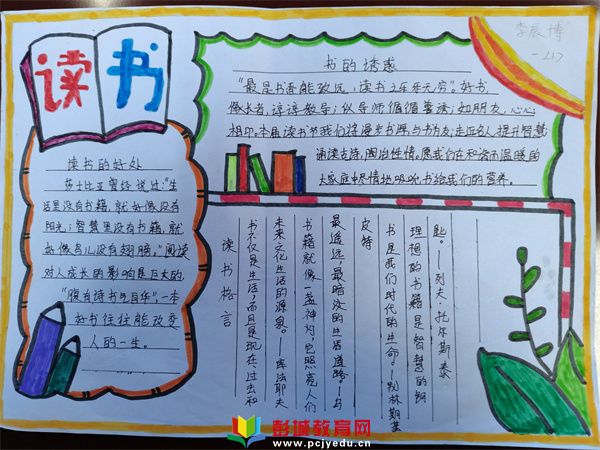 李展博
读书
书的诱惑
"最是书香能致远,读书之乐乐无穷"。好书
像长者,谆谆教导;似导师循循善诱;如朋友,心心
相印。本届读书节我们将漫步书屋与书为友,走近名人,提升智慧
诵读古诗,陶冶性情。愿我们在和谐而温暖的
大家庭中尽情地吸吮书给我们的营养。
读书的好处
莎士比亚曾经说过:"生
活里没有书籍,就好像没有
阳光;智慧里没有书籍,就
好像鸟儿没有翅膀。"阅读
对人成长的影响是巨大的,
"腹有诗书气自华",一本
好书往往能改变
人的一生。
读书格言
书不仅是生活,而且是现在、过去和
未来文化生活的源泉。——库法耶夫
书籍就像一盏神灯,它照亮人们
最遥远、最暗淡的生活道路。——乌
皮特
书是我们时代的生命。——别林斯基
理想的书籍是智慧的钥
匙。——列夫·托尔斯泰
彭城教育网
www.pcjyedu.cn